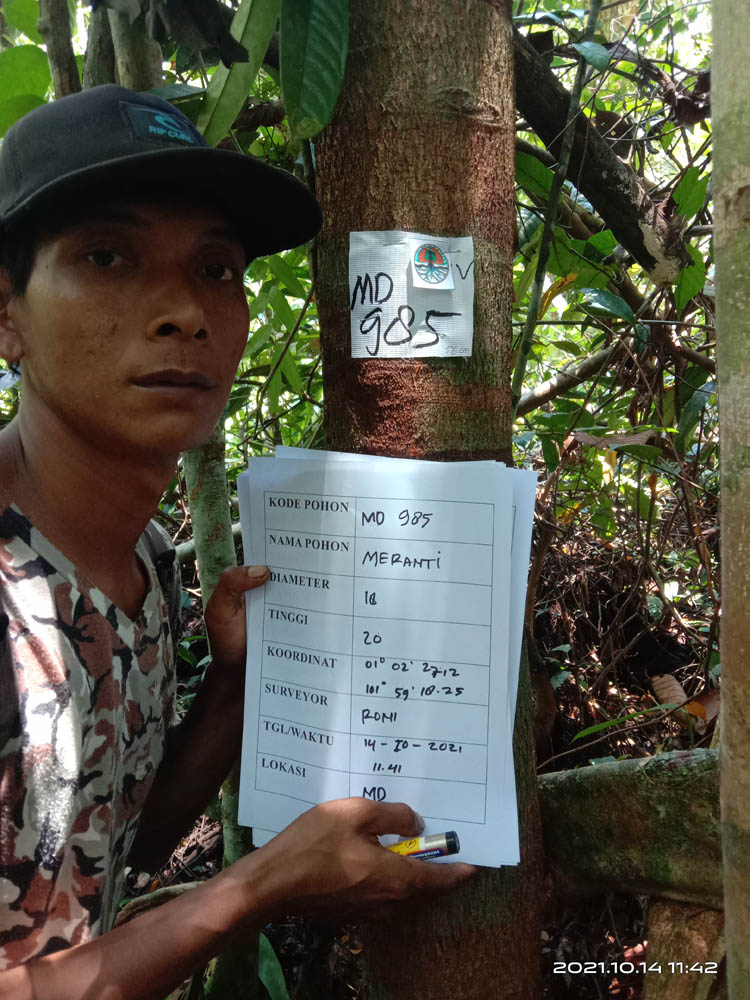 RIP CURL
MD
985
KODE POHON MD 985
NAMA POHON MERANTI
DIAMETER 18
TINGGI 20
KOORDINAT 01° 02' 27.12
101° 59' 18.25
SURVEYOR RONI
TGL/WAKTU 14-10-2021
11.41
LOKASI MD
2021.10.14 11:42